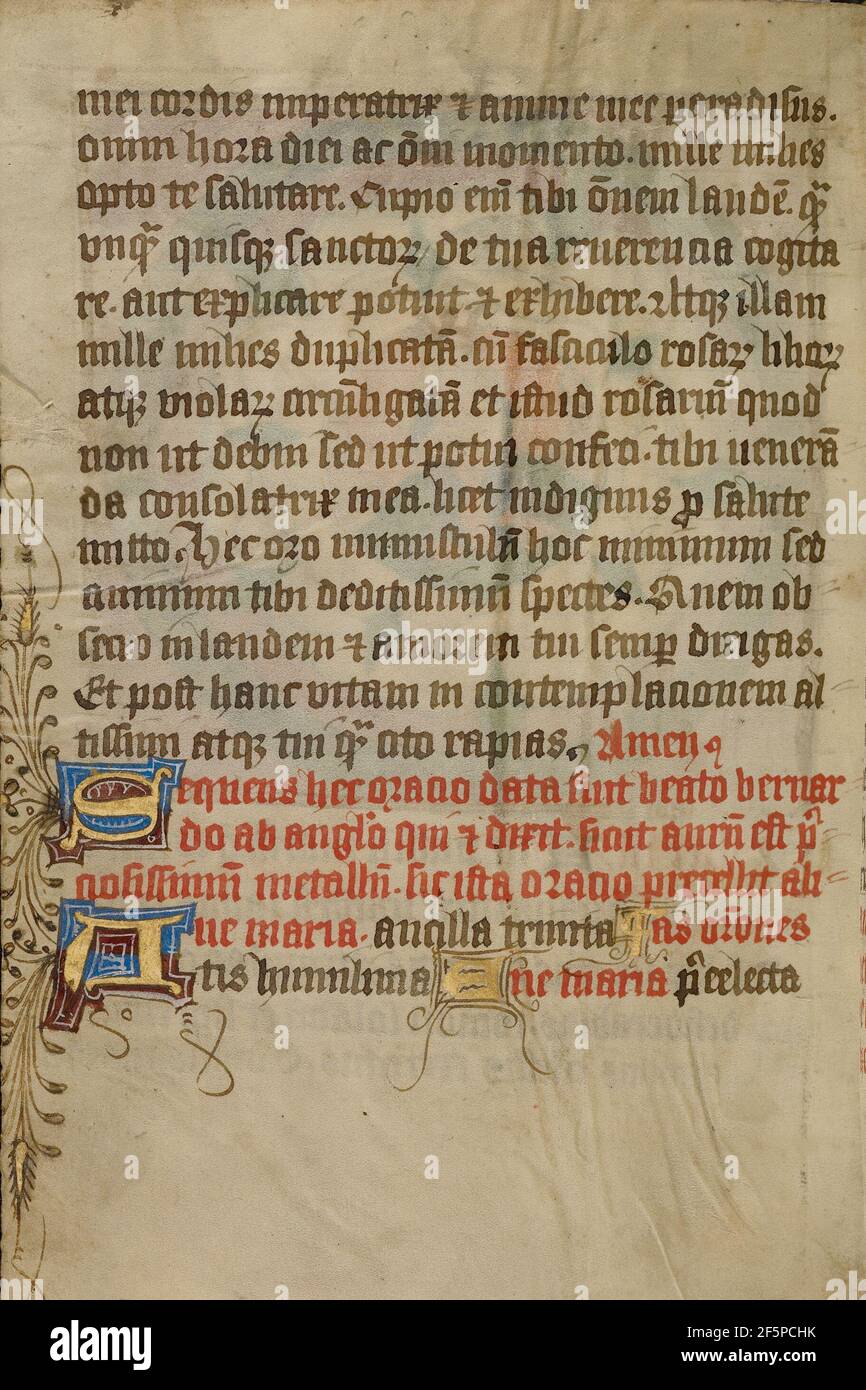 mei cordis imperatrix ⁊ anime mee paradisus.
omni hora diei ac om̄i momento. mille milies
opto te salutare. Cupio em̄ tibi om̄em laudē. qͣ
vnqͣ quisqꝫ sanctoꝝ de tua reuerencia cogita
re. aut explicare potuit ⁊ exhibere. Atqꝫ illam
mille milies duplicatā. cū fasciculo rosaꝝ lilioꝝ
atqꝫ violaꝝ circūligatā et istud rosariū quod
non ut debui sed ut potui confeci. tibi uenerā
da consolatrix mea. licet indignus ꝓ salute
mitto. Nec oro munusculū hoc minimum sed
animum tibi deditissimū spectes. Quem ob
secro in laudem ⁊ amorem tui semꝑ dirigas.
Et post hanc vitam in contemplacionem al
tissimi atqꝫ tui qͣ cito rapias. Amen
Sequens hec oracio data fuit beato bernar
do ab anglo qui ⁊ dixit. sicut aurū est p̄
ciosissimū metallū. sic ista oracio precellit ali
Aue maria. ancilla trinita as or̄ones
tis humilima Aue maria p̄electa
a
alamy
Image ID: 2F5PCHK
www.alamy.com